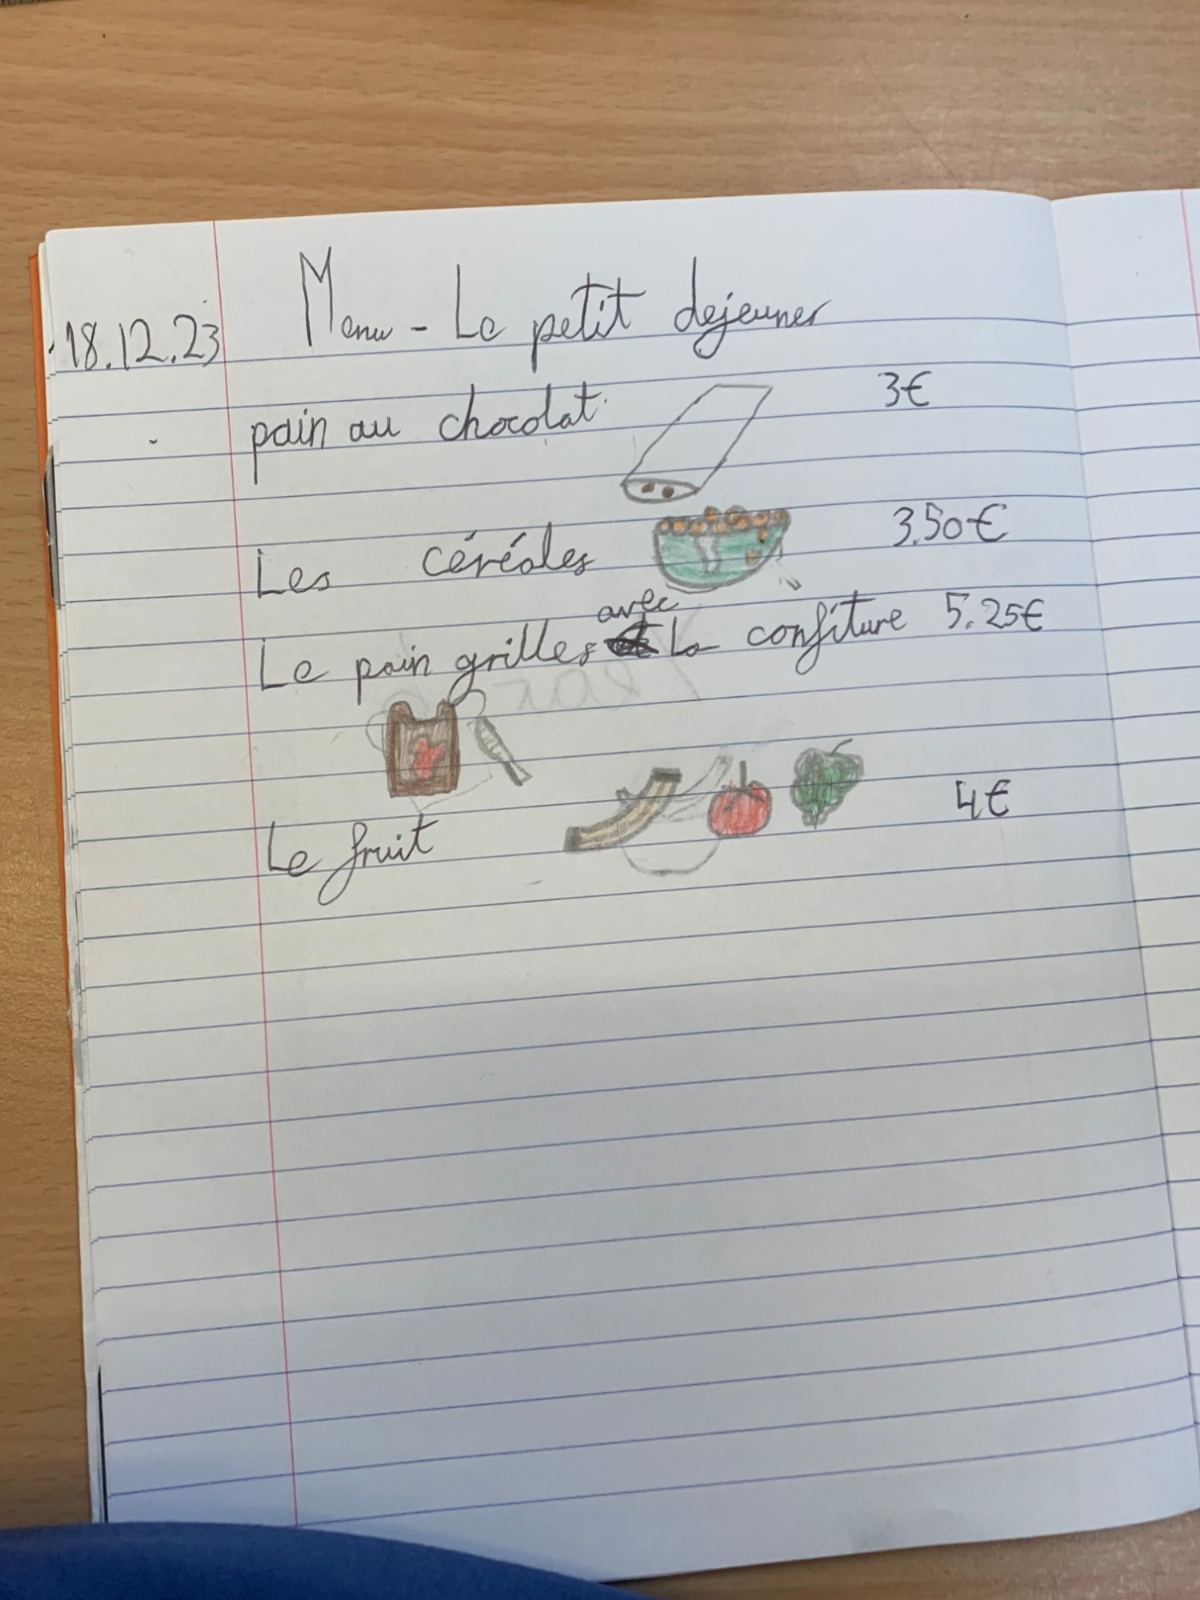 18.12.23 Menu - Le petit dejeuner
pain au chocolat 3€
Les céréales 3.50€
avec
Le pain grilles la confiture 5.25€
Le fruit 4€